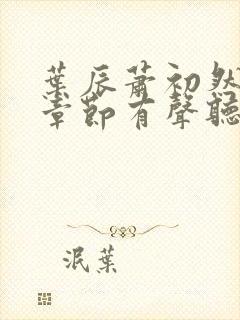 葉辰蕭初然
章節有聲聽
泯葉